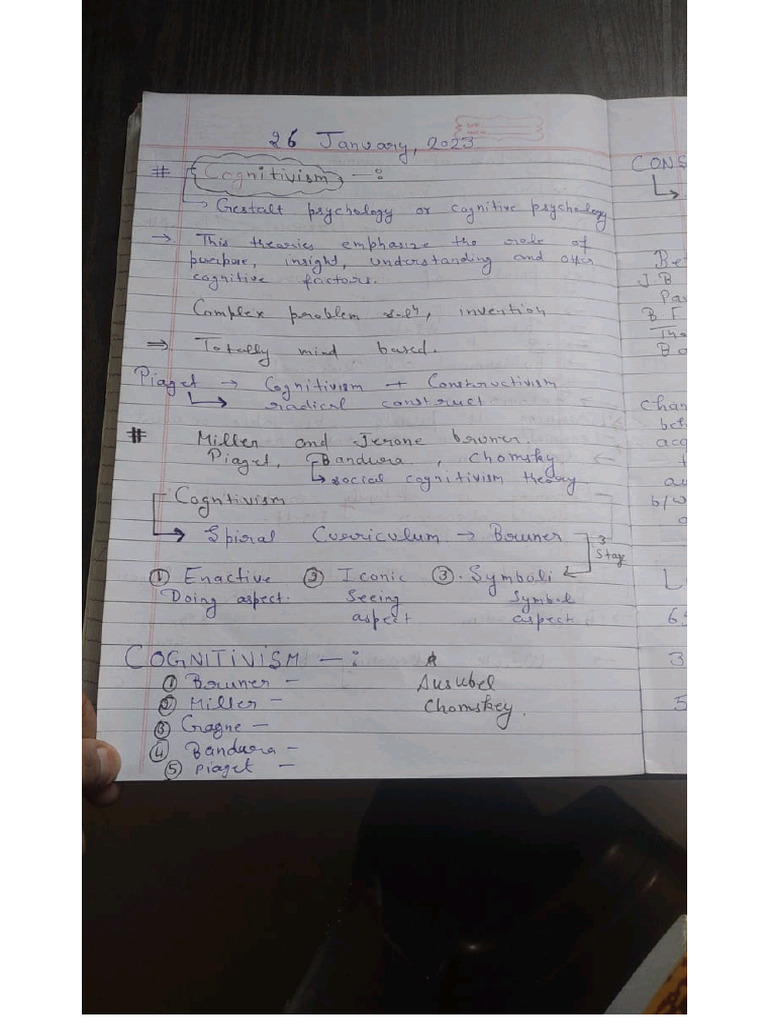 26 January, 2023
# Cognitivism —:
→ Gestalt psychology or cognitive psychology
→ This theories emphasize the role of
purpose, insight, understanding and other
cognitive factors.
Complex problem , invention
⇒ Totally mind based.
Piaget → Cognitivism + Constructivism
↳ radical construct
# Miller and Jerone bruner.
Piaget, Bandura, Chomsky
↳ social cognitivism theory
Cognitivism
→ Spiral Curriculum → Bruner
3 Stage
① Enactive ② Iconic ③. Symboli
Doing aspect. Seeing Symbol
aspect aspect
COGNITIVISM —:
① Bruner — Ausubel
② Miller — Chomskey.
③ Gagne —
④ Bandura —
⑤ Piaget —
CONS
Be
J B
Pav
B F
Tho
Ba
Chan
beh
acq
t
au
b/w
L
65
3
5